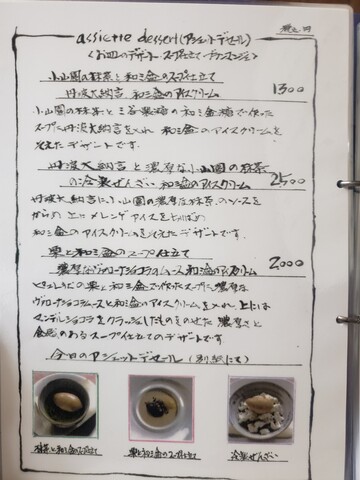 税込 円
assiette dessert (アシェットデセール)
くお皿のデザート スープ仕立て
小山園の抹茶と和三盆のスープ仕立て
丹波大納言 和三盆のアイスクリーム 1300
小山園の抹茶と三谷製糖の和三盆糖で作った
スープに丹波大納言を入れ 和三盆のアイスクリームを
添えたデザートです。
丹波大納言と濃厚な小山園の抹茶
の冷製ぜんざい 和三盆のアイスクリーム 2500
丹波大納言に小山園の濃厚な抹茶のソースを
からめ 上にメレンゲアイスを
和三盆のアイスクリームを添えたデザートです。
栗と和三盆のスープ仕立て
濃厚なヴァローナショコラのムース 和三盆のアイスクリーム 2000
の栗と和三盆で作ったスープに濃厚な
ヴァローナショコラムースと和三盆のアイスクリームを入れ 上には
ショコラをクラッシュしたものをのせた 濃厚さと
食感のあるスープ仕立てのデザートです。
今日のアシェットデセール (別紙にも)
抹茶と和三盆のスープ仕立て
栗と和三盆のスープ仕立て
冷製ぜんざい